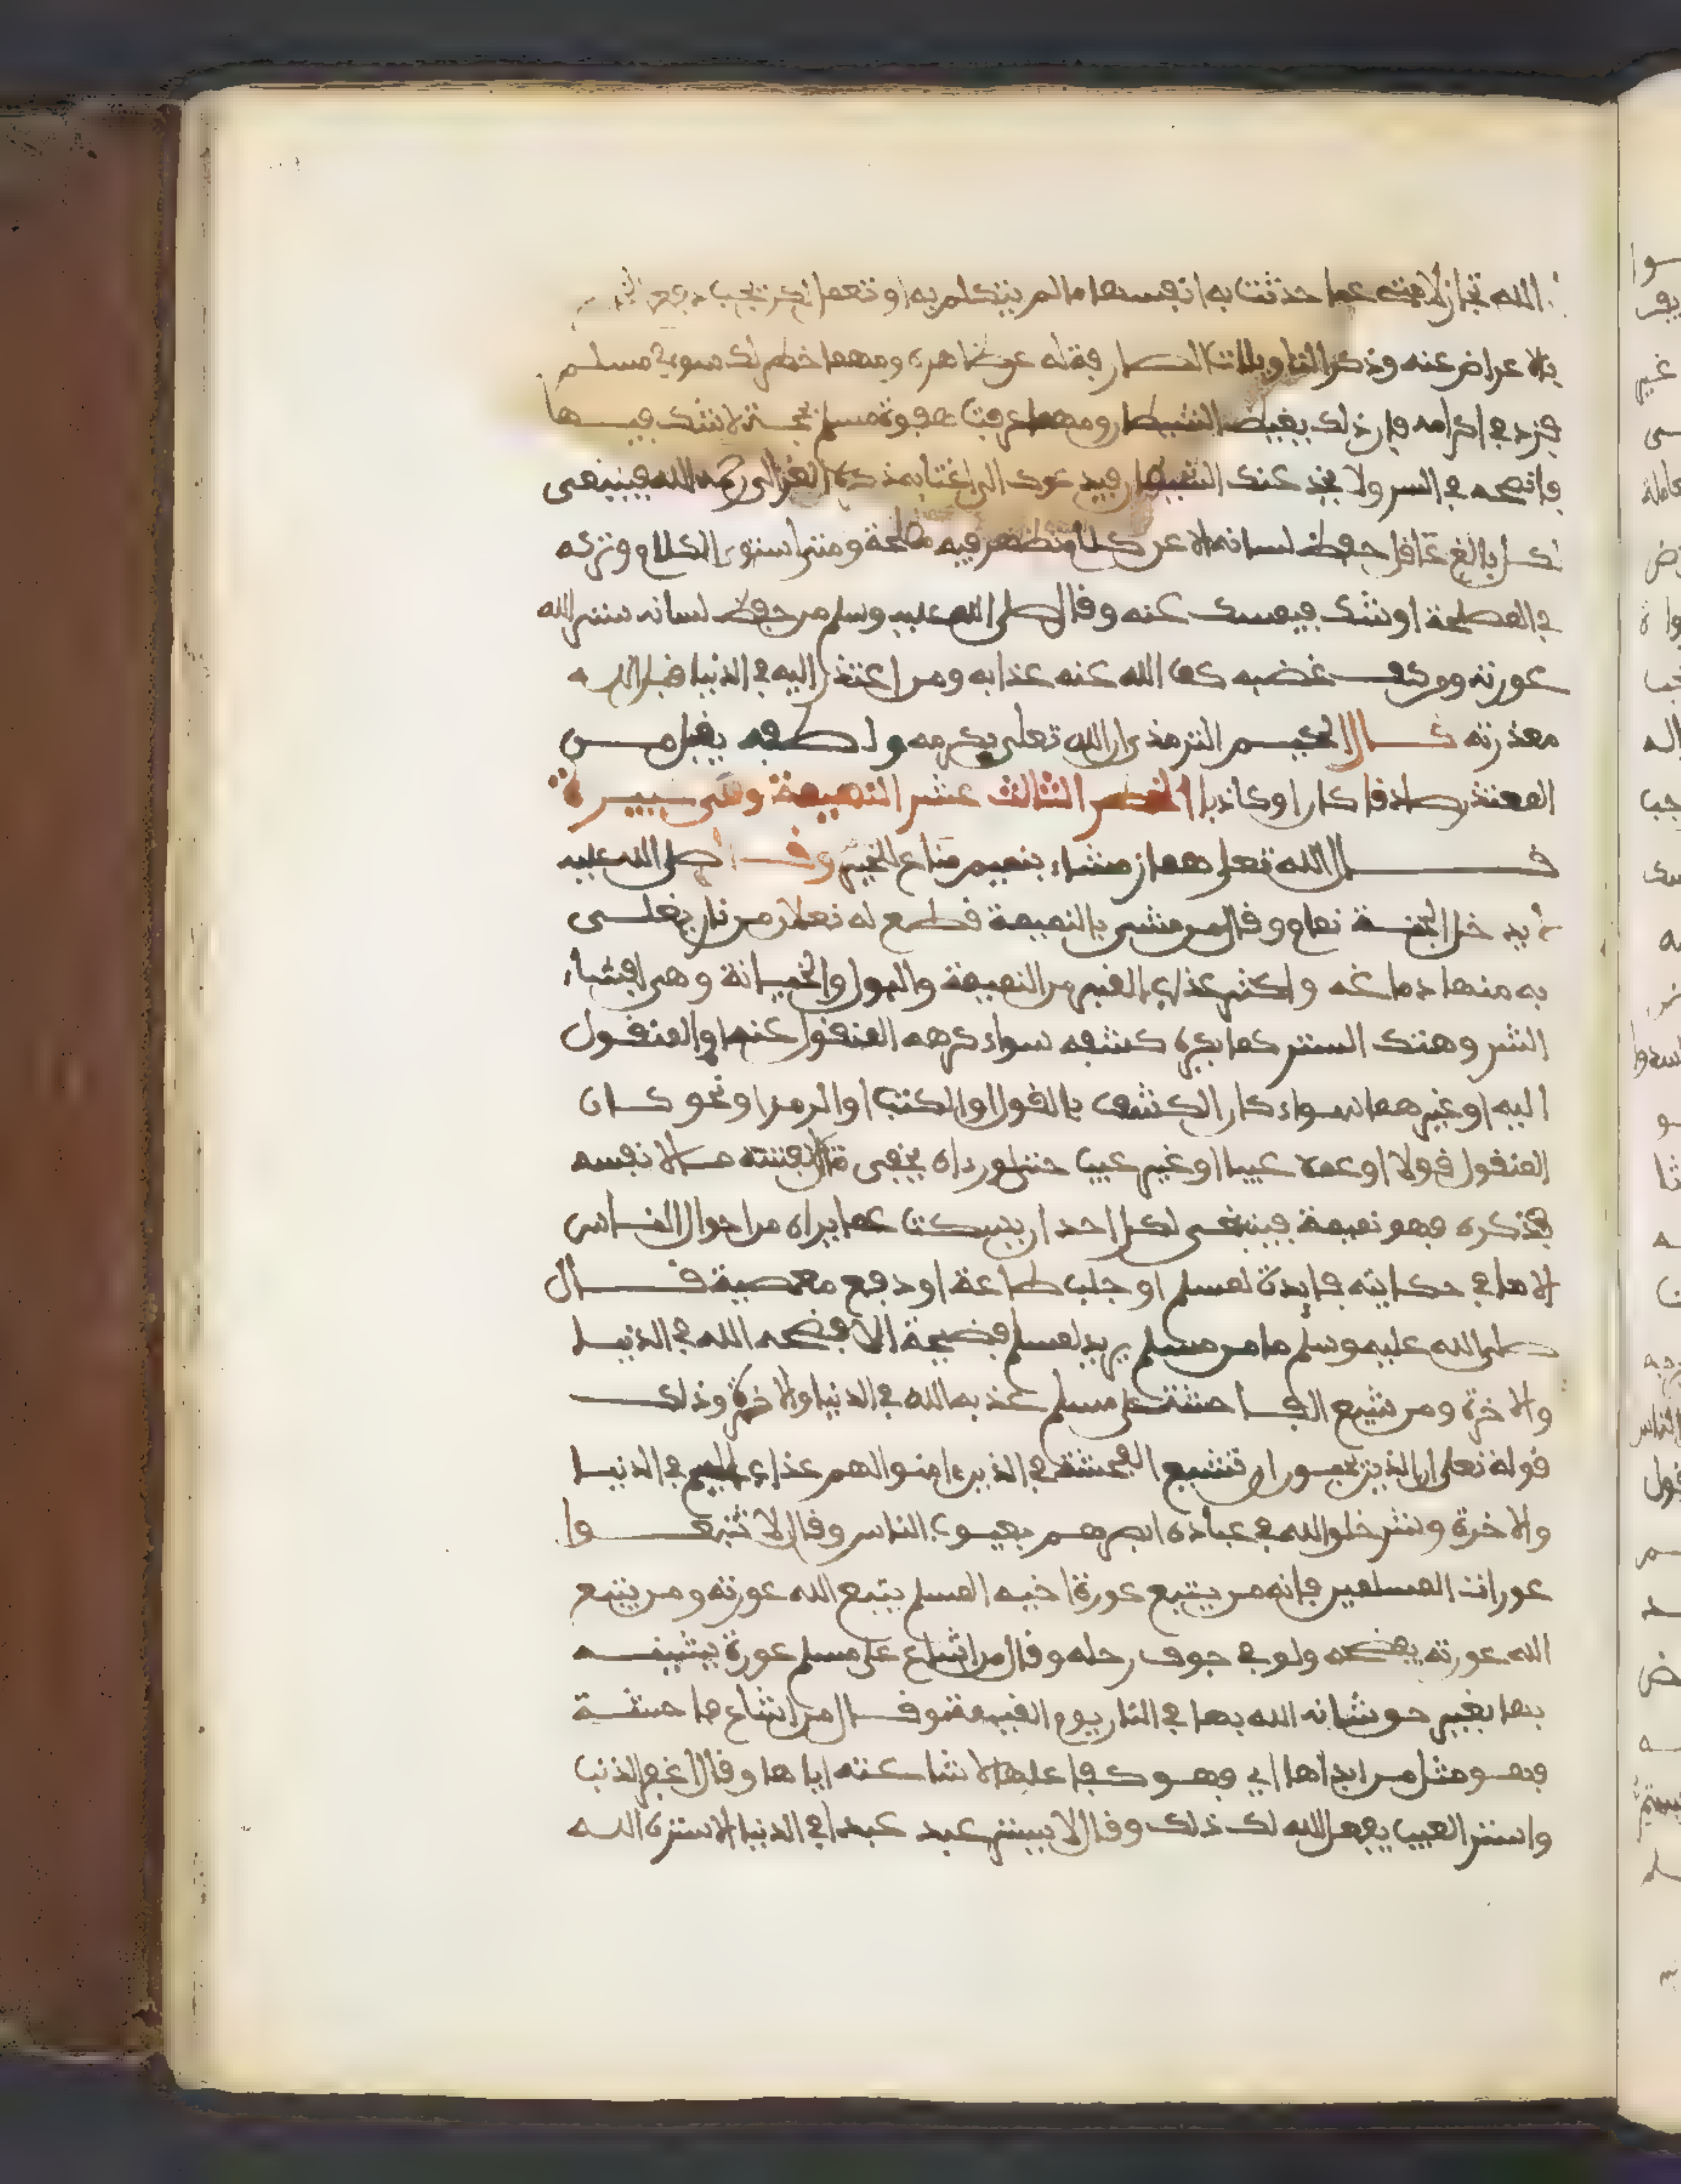 الله تجاوز لامته عما حدثت به انفسها ما لم يتكلم به او تعمل لكن يجب دفع
بالاعراض عنه وذكر التاويلات الصارفة له عن ظاهره ومهما خطر لك سوء في مسلم
فزد في اكرامه فان ذلك يغيض الشيطان ومهما عرفت هفوة مسلم بحجة لا شك فيها
فانصحه في السر ولا يخدعنك الشيطان فيدعوك الى اغتيابه ذكره الغزالي رحمه الله فينبغي
لكل بالغ عاقل حفظ لسانه الا عن كلام تظهر فيه مصلحة ومتى استوى الكلام وتركه
في المصلحة او شك فيمسك عنه وقال صلى الله عليه وسلم من حفظ لسانه ستر الله
عورته ومن كف غضبه كف الله عنه عذابه ومن اعتذر اليه في الدنيا قبل الله
معذرته قال الحكيم الترمذي ان الله تعلى بكرمه ولطفه يقبل من
المعتذر صادقا كان او كاذبا الخصر الثالث عشر النميمة وهي كبيرة
قال الله تعلى هماز مشاء بنميم مناع للخير وقال صلى الله عليه
لا يدخل الجنة نمام وقال من مشى بالنميمة قطع له نعلان من نار يغلي
به منها دماغه واكثر عذاب القبر من النميمة والبول والخيانة وهي افشاء
السر وهتك الستر عما يكره كشفه سواء كرهه المنقول عنه او المنقول
اليه او غيرهما سواء كان الكشف بالقول او الكتب او الرمز او نحو كان
المنقول قولا او عملا عيبا او غير عيب حتى لو رءاه يخفي مالا لنفسه
فذكره فهو نميمة فينبغي لكل احد ان يسكت عما يراه من احوال الناس
الا ما في حكايته فايدة لمسلم او جلب طاعة او دفع معصية قال
صلى الله عليه وسلم ما من مسلم يريد لمسلم فضيحة الا فضحه الله في الدنيا
والاخرة ومن شيع الفاحشة على مسلم عذبه الله في الدنيا والاخرة وذلك
قوله تعلى ان الذين يحبون ان تشيع الفحشة في الذين ءامنوا لهم عذاب اليم في الدنيا
والاخرة وشر خلق الله في عباده ابصرهم بعيوب الناس وقال لا تتبعوا
عورات المسلمين فانه من يتبع عورة اخيه المسلم يتبع الله عورته ومن يتبع
الله عورته يفضحه ولو في جوف رحله وقال من اشاع على مسلم عورة يشينه
بها بغير حق شانه الله بها في النار يوم القيمة وقال من اشاع فاحشة
فهو مثل من ابداها اي فهو كفاعلها لاشاعته اياها وقال اغفر الذنب
واستر العيب يفعل الله لك ذلك وقال لا يستر عبد عبدا في الدنيا الا ستره الله